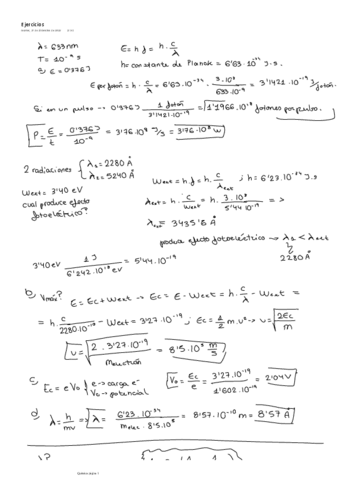 Ejercicios
λ = 633 nm E = h f = h · c/λ
T = 10⁻⁹ s h = constante de Planck = 6'63 · 10⁻³⁴ J · s.
a) E = 0'376 J
E por fotón = h · c/λ = 6'63 · 10⁻³⁴ · 3 · 10⁸ / 633 · 10⁻⁹ = 3'1421 · 10⁻¹⁹ J/fotón
Si en un pulso → 0'376 J · 1 fotón / 3'1421 · 10⁻¹⁹ = 1'1966 · 10¹⁸ fotones por pulso.
P = E/t = 0'376 J / 10⁻⁹ = 3'76 · 10⁸ J/s = 3'76 · 10⁸ W
2 radiaciones { λa = 2280 Å
λb = 5240 Å
Wext = 3'40 eV Wext = h f = h · c/λext ; h = 6'23 · 10⁻³⁴ J · s
cual produce efecto fotoeléctrico? λext = h · c/Wext = h · 3 · 10⁸ / 5'44 · 10⁻¹⁹ = >
λext = 3435'6 Å
produce efecto fotoeléctrico → λa < λext
2280 Å
3'40 eV · 1 J / 6'242 · 10¹⁸ eV = 5'44 · 10⁻¹⁹
b) Vmáx? E = Ec + Wext → Ec = E - Wext = h · c/λ - Wext =
= h · c / 2280 · 10⁻¹⁰ - Wext = 3'27 · 10⁻¹⁹ ; Ec = 1/2 m v² → v = √(2Ec/m)
v = √(2 · 3'27 · 10⁻¹⁹ / m electrón) = 8'5 · 10⁵ m/s
c) Ec = e V₀ { e → carga e⁻
V₀ → potencial
V₀ = Ec/e = 3'27 · 10⁻¹⁹ / 1'602 · 10⁻¹⁹ = 2'04 V
d) λ = h/mv => λ = 6'23 · 10⁻³⁴ / m elec · 8'5 · 10⁵ = 8'57 · 10⁻¹⁰ m = 8'57 Å